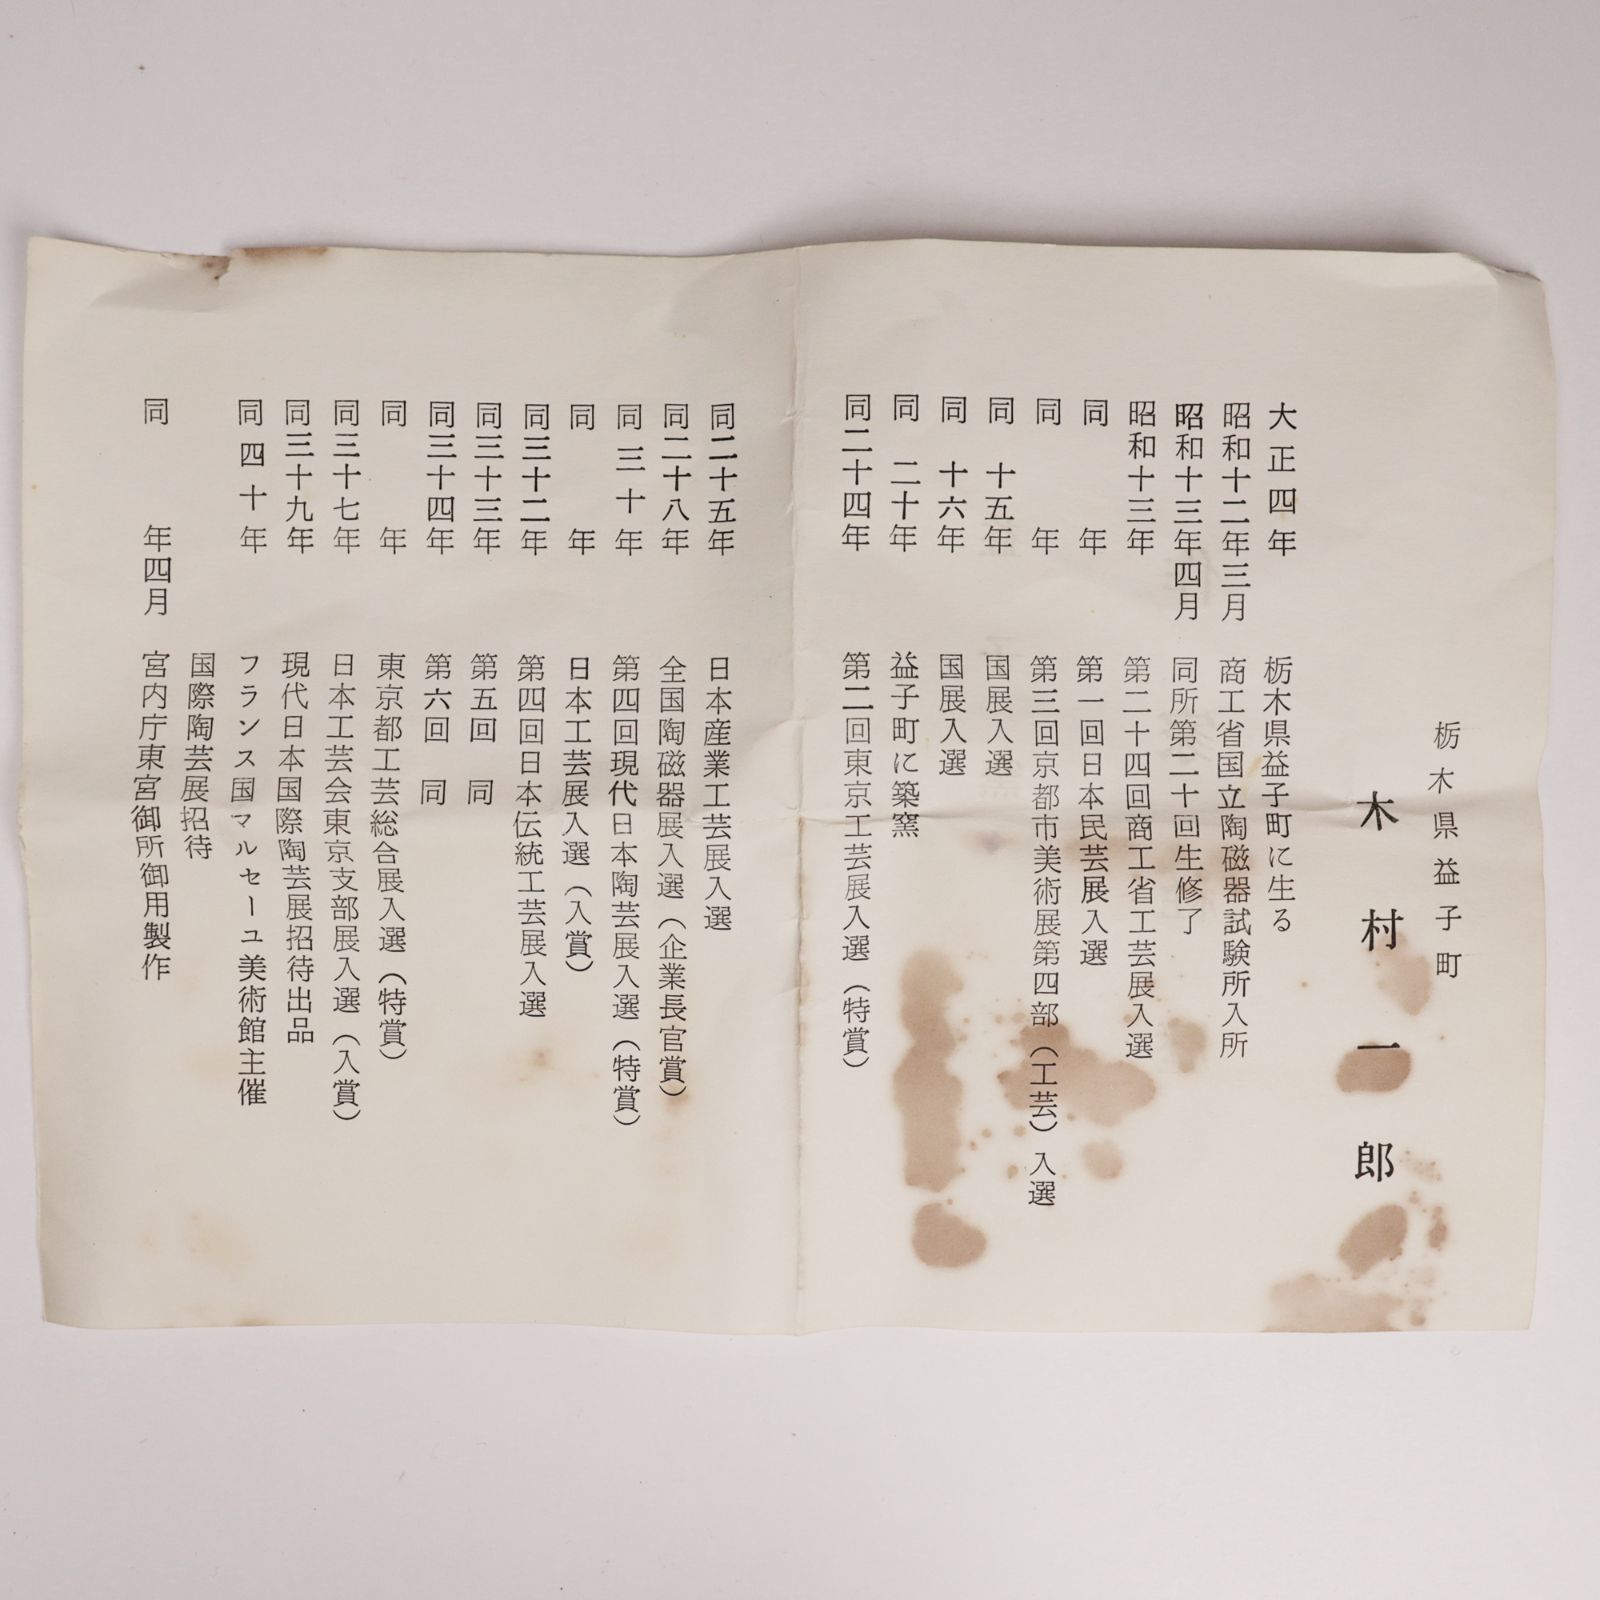 栃木県益子町
木村一郎
大正四年 栃木県益子町に生る
昭和十二年三月 商工省国立陶磁器試験所入所
昭和十三年四月 同所第二十回生修了
昭和十三年 第二十四回商工省工芸展入選
同 年 第一回日本民芸展入選
同 年 第三回京都市美術展第四部（工芸）入選
同 十五年 国展入選
同 十六年 国展入選
同 二十年 益子町に築窯
同二十四年 第二回東京工芸展入選（特賞）
同二十五年 日本産業工芸展入選
同二十八年 全国陶磁器展入選（企業長官賞）
同三十年 第四回現代日本陶芸展入選（特賞）
同 年 日本工芸展入選（入賞）
同三十二年 第四回日本伝統工芸展入選
同三十三年 第五回 同
同三十四年 第六回 同
同 年 東京都工芸総合展入選（特賞）
同三十七年 日本工芸会東京支部展入選（入賞）
同三十九年 現代日本国際陶芸展招待出品
同四十年 フランス国マルセーユ美術館主催
国際陶芸展招待
同 年四月 宮内庁東宮御所御用製作